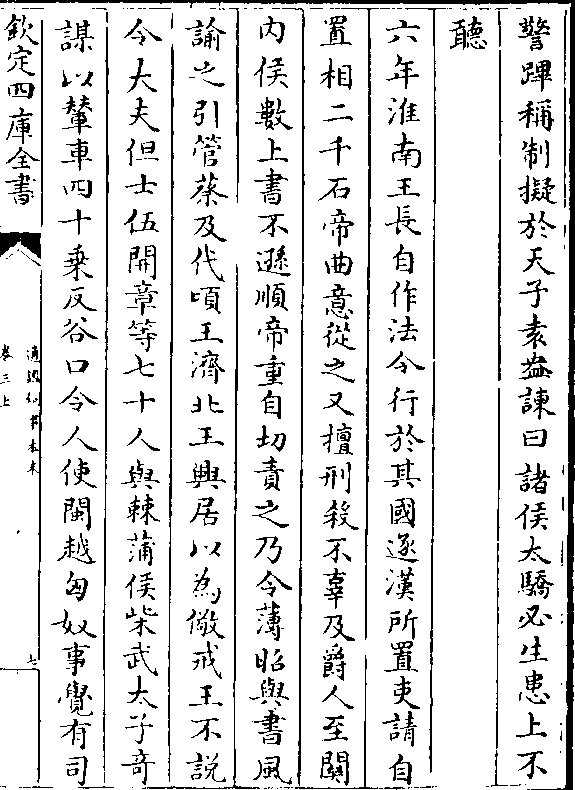 警蹕稱制擬於天子袁盎諫曰諸侯太驕必生患上不
聽
六年淮南王長自作法令行於其國逐漢所置吏請自
置相二千石帝曲意從之又擅刑殺不辜及爵人至關
内侯數上書不遜順帝重自切責之乃令薄昭與書風
諭之引管蔡及代頃王濟北王興居以為儆戒王不説
令大夫但士伍開章等七十人與棘蒲侯柴武太子竒
謀以輦車四十乗反谷口令人使閩越匈奴事覺有司
欽定四庫全書
通鑑紀事本末
卷三上
七